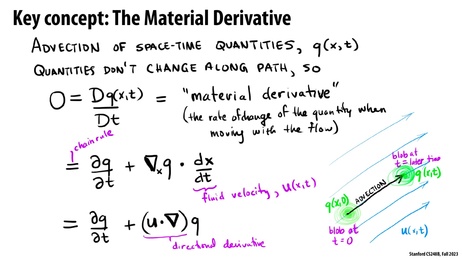 Key concept: The Material Derivative
ADVECTION OF SPACE-TIME QUANTITIES, q(x,t)
QUANTITIES DON'T CHANGE ALONG PATH, SO
0 = Dq(x,t)/Dt = "material derivative"
(the rate of change of the quantity when
moving with the flow)
chain rule
= ∂q/∂t + ∇ₓq · dx/dt
fluid velocity, u(x,t)
= ∂q/∂t + (u·∇)q
directional derivative
blob at
t = later time
q(x,t)
ADVECTION
q(x,0)
blob at
t=0
u(x,t)
Stanford CS248B, Fall 2023